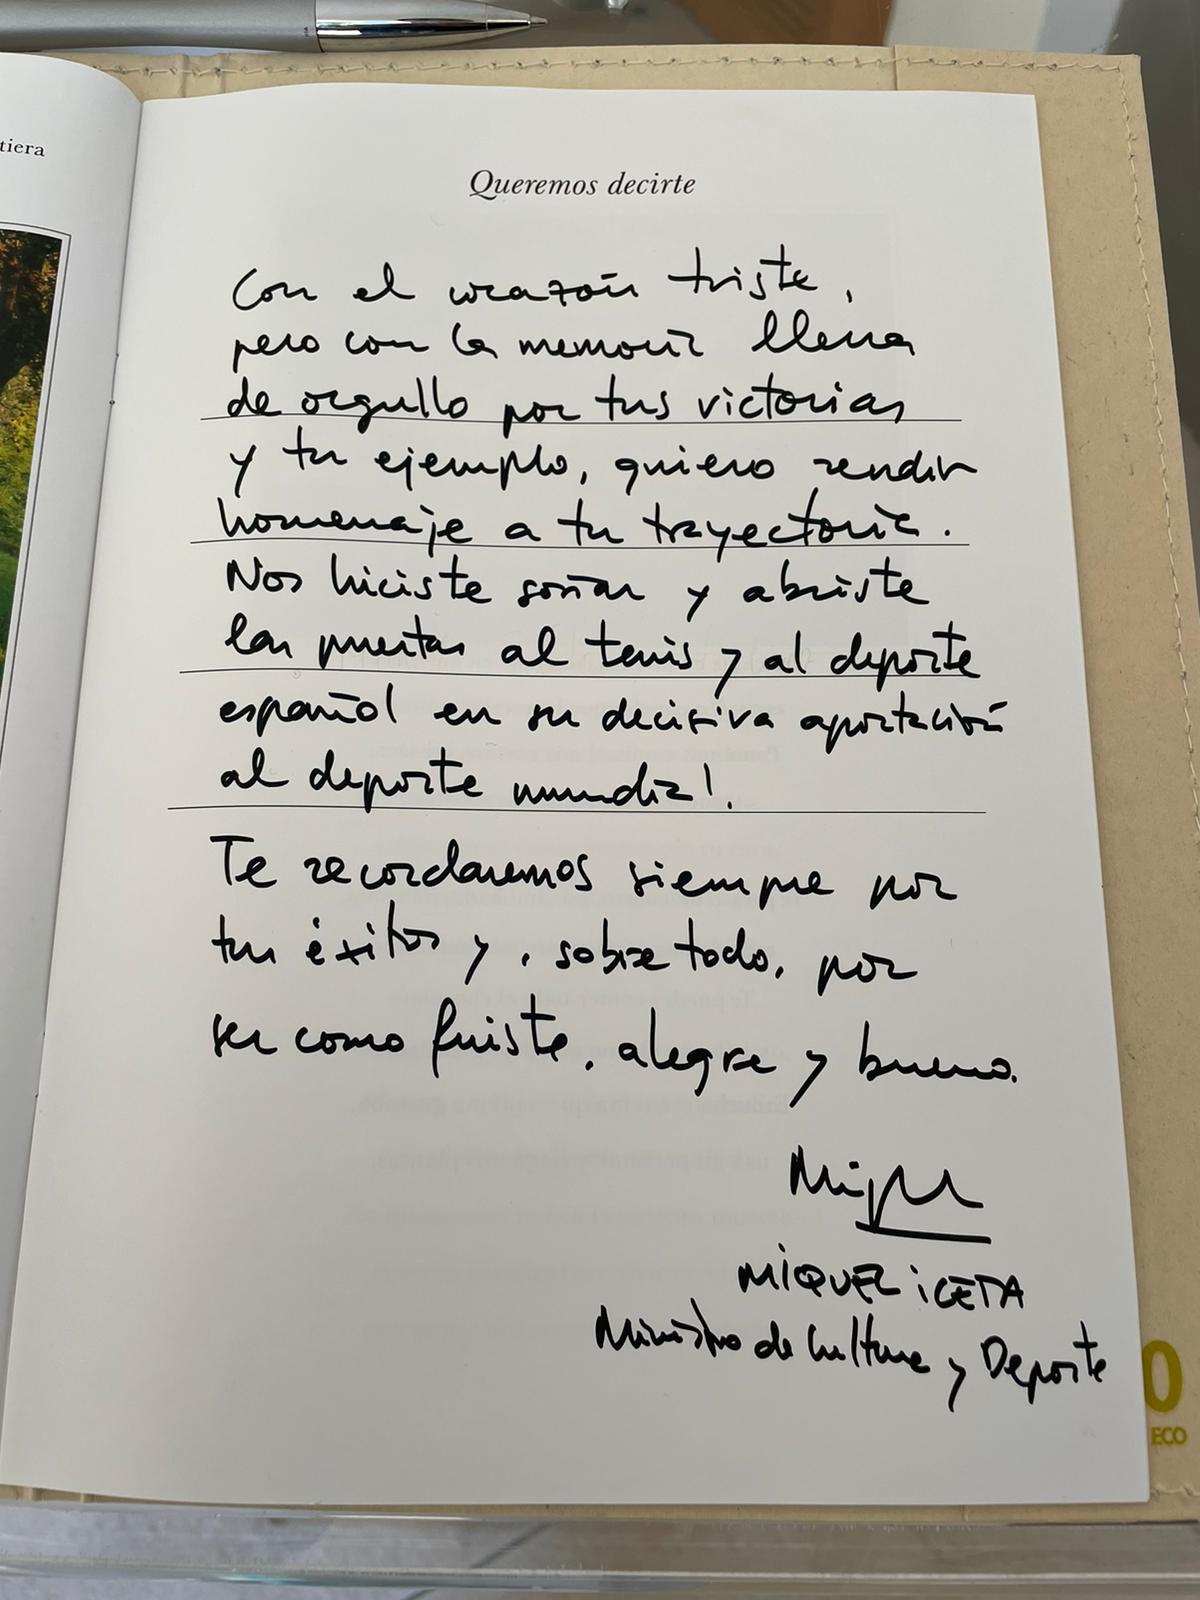 tiera
Queremos decirte
Con el corazón triste,
pero con la memoria llena
de orgullo por tus victorias
y tu ejemplo, quiero rendir
homenaje a tu trayectoria.
Nos hiciste soñar y abriste
las puertas al tenis y al deporte
español en su decisiva aportación
al deporte mundial.
Te recordaremos siempre por
tus éxitos y, sobre todo, por
ser como fuiste, alegre y bueno.
Miquel
MIQUEL ICETA
Ministro de Cultura y Deporte
O
ECO